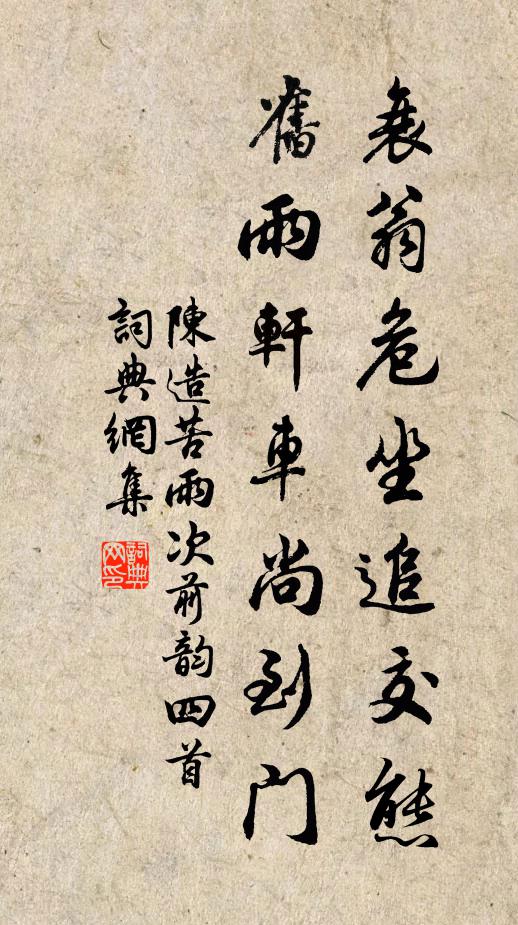 衰翁危坐追交態
舊雨軒車尚到門
陳造苦雨次前韵四首
詞典網集
詞典
网印